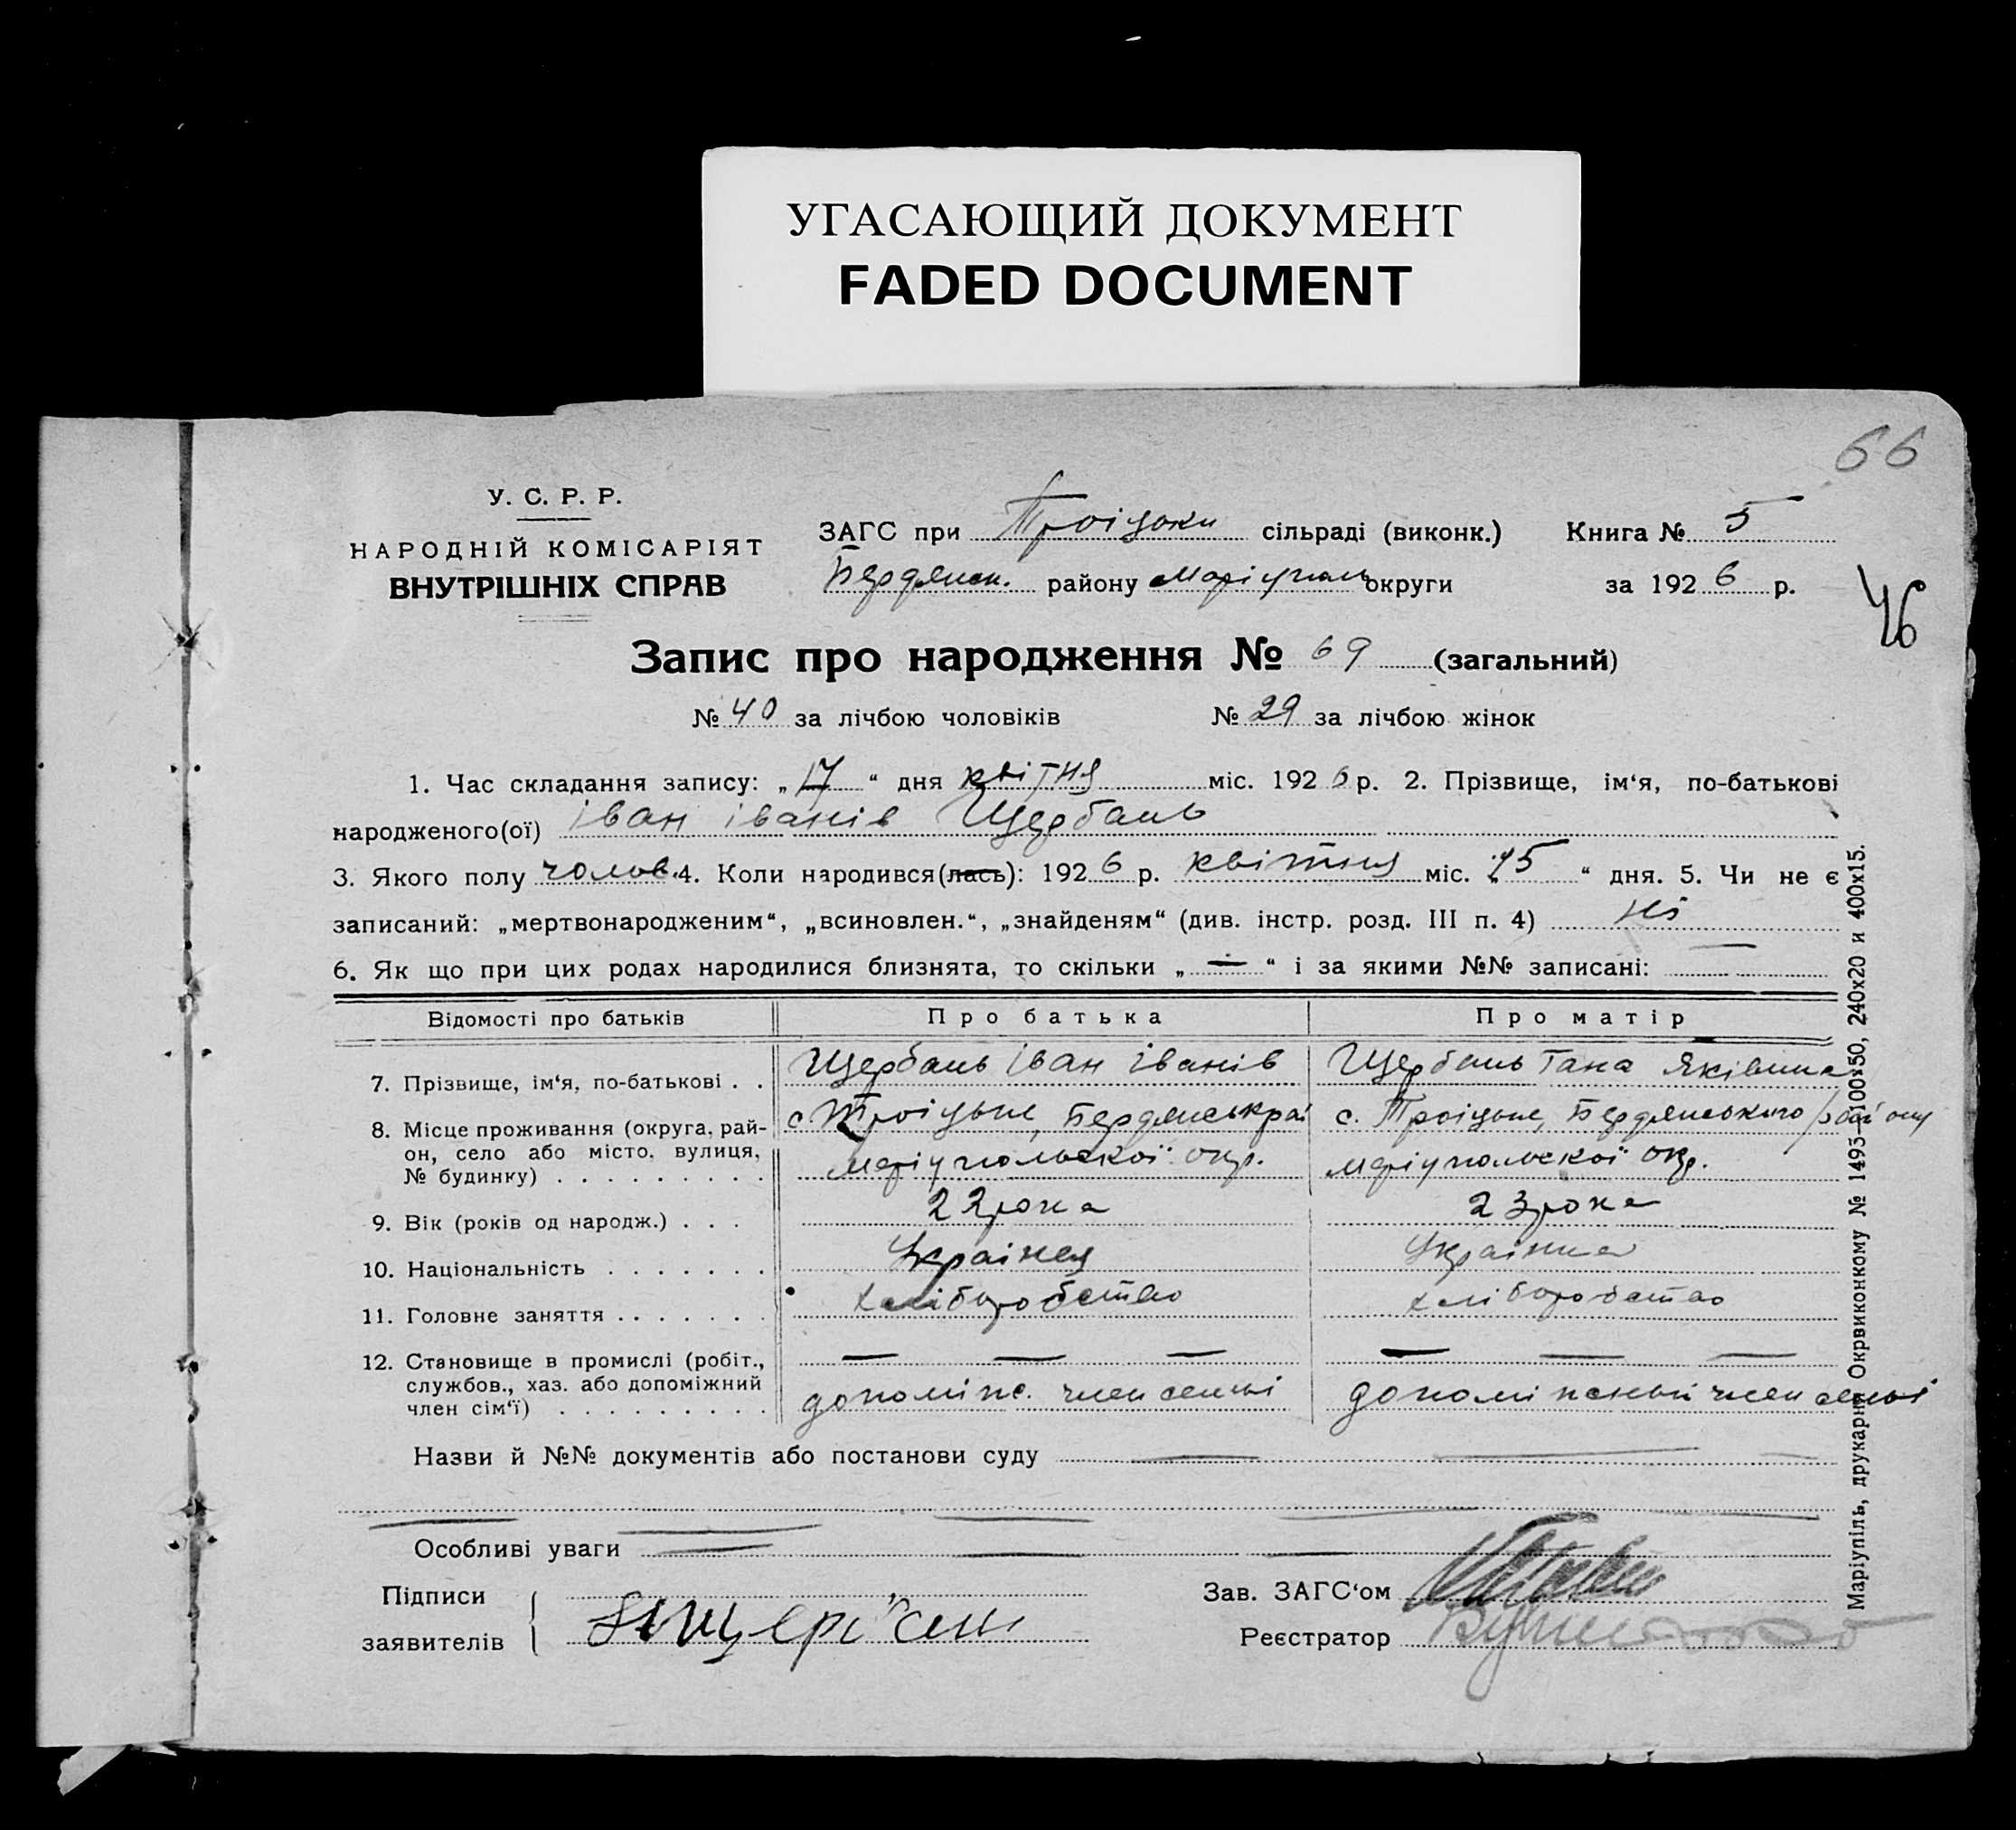 УГАСАЮЩИЙ ДОКУМЕНТ
FADED DOCUMENT
66
У. С. Р. Р.
НАРОДНІЙ КОМІСАРІЯТ
ВНУТРІШНІХ СПРАВ
ЗАГС при Троіцьки сільраді (виконк.) Книга № 5
Бердянськ. району Маріупіль округи за 1926 р.
46
Запис про народження № 69 (загальний)
№ 40 за лічбою чоловіків № 29 за лічбою жінок
1. Час складання запису: „17“ дня квітня міс. 1926 р. 2. Прізвище, ім‘я, по-батькові
народженого(ої) Іван Іванів Щербань
3. Якого полу чолов. 4. Коли народився(лась): 1926 р. квітня міс. „15“ дня. 5. Чи не є
записаний: „мертвонародженим“, „всиновлен.“, „знайденям“ (див. інстр. розд. III п. 4) Ні
6. Як що при цих родах народилися близнята, то скільки „—“ і за якими №№ записані: —
Відомості про батьків Про батька Про матір
7. Прізвище, ім‘я, по-батькові . . Щербань Іван Іванів Щербань Гана Яківина
8. Місце проживання (округа, рай- с. Троіцьке, Бердянськ рай с. Троіцьке, Бердянського району
он, село або місто, вулиця, Маріупольскої окр. Маріупольскої окр.
№ будинку) . . . . . . . . .
9. Вік (років од народж.) . . . 22 рока 23 рока
10. Національність . . . . . . . Українец Українка
11. Головне заняття . . . . . . . хліборобство хліборобство
12. Становище в промислі (робіт., — — — — — —
службов., хаз. або допоміжний допоміж. член семьі допоміжный член семьі
член сім‘ї) . . . . . . . . .
Назви й №№ документів або постанови суду — — —
Особливі уваги — — —
Підписи
заявителів
Зав. ЗАГС‘ом
Реєстратор
Маріупіль, друкарня Окрвиконкому № 1493—100х50, 240х20 и 400х15.